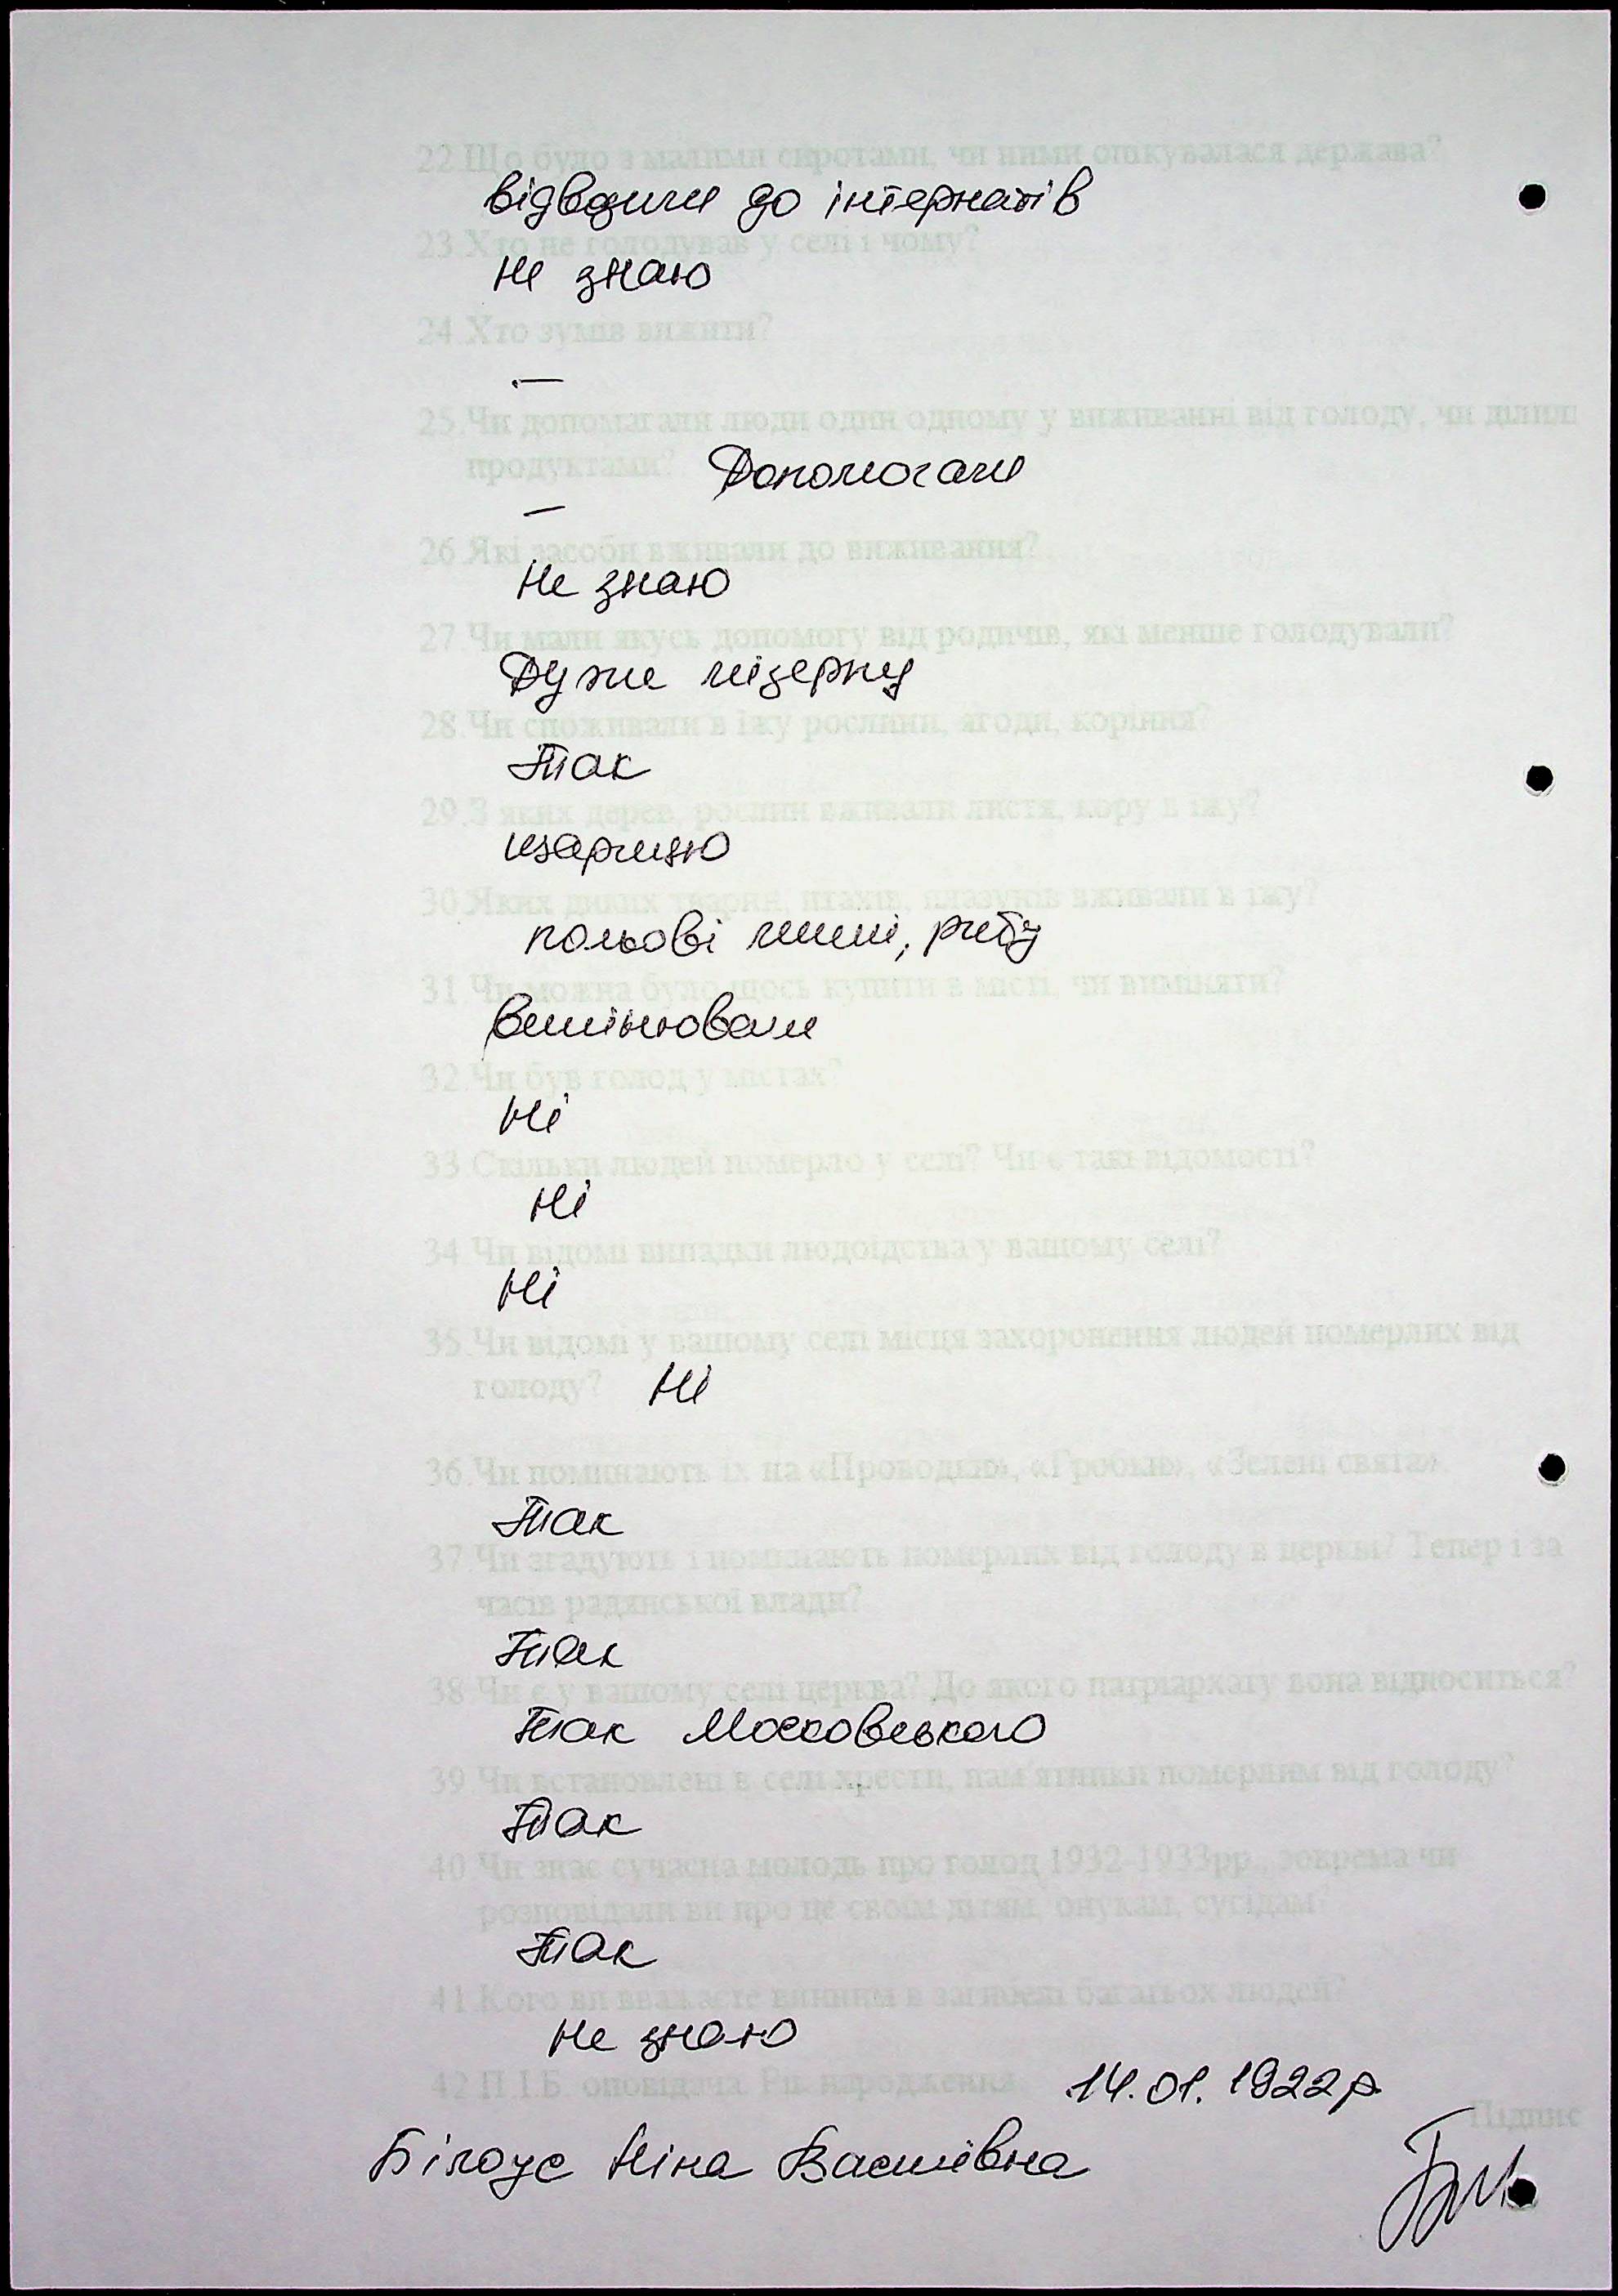 22.Що було з малими сиротами, чи ними опікувалася держава?
відводили до інтернатів
23.Хто не голодував у селі і чому?
Не знаю
24.Хто зумів вижити?
—
25.Чи допомагали люди один одному у виживанні від голоду, чи ділили
продуктами? Допомогали
—
26.Які засоби вживали до виживання?
Не знаю
27.Чи мали якусь допомогу від родичів, які менше голодували?
Дуже мізерну
28.Чи споживали в їжу рослини, ягоди, коріння?
Так
29.З яких дерев, рослин вживали листя, кору в їжу?
30.Яких диких тварин, птахів, плазунів вживали в їжу?
польові миші, рибу
31.Чи можна було щось купити в місті, чи виміняти?
Вимінювали
32.Чи був голод у містах?
Ні
33.Скільки людей померло у селі? Чи є такі відомості?
Ні
34.Чи відомі випадки людоїдства у вашому селі?
Ні
35.Чи відомі у вашому селі місця захоронення людей померлих від
голоду? Ні
36.Чи поминають їх на «Проводи», «Гробки», «Зелені свята»
Так
37.Чи згадують і поминають померлих від голоду в церкві? Тепер і за
часів радянської влади?
Так
38.Чи є у вашому селі церква? До якого патріархату вона відноситься?
Так Московського
39.Чи встановлені в селі хрести, пам'ятники померлим від голоду?
Так
40.Чи знає сучасна молодь про голод 1932-1933рр., зокрема чи
розповідали ви про це своїм дітям, онукам, сусідам?
Так
41.Кого ви вважаєте винним в загибелі багатьох людей?
Не знаю
42.П.І.Б. оповідача. Рік народження 14.01.1922р.
Підпис
Білоус Ніна Василівна